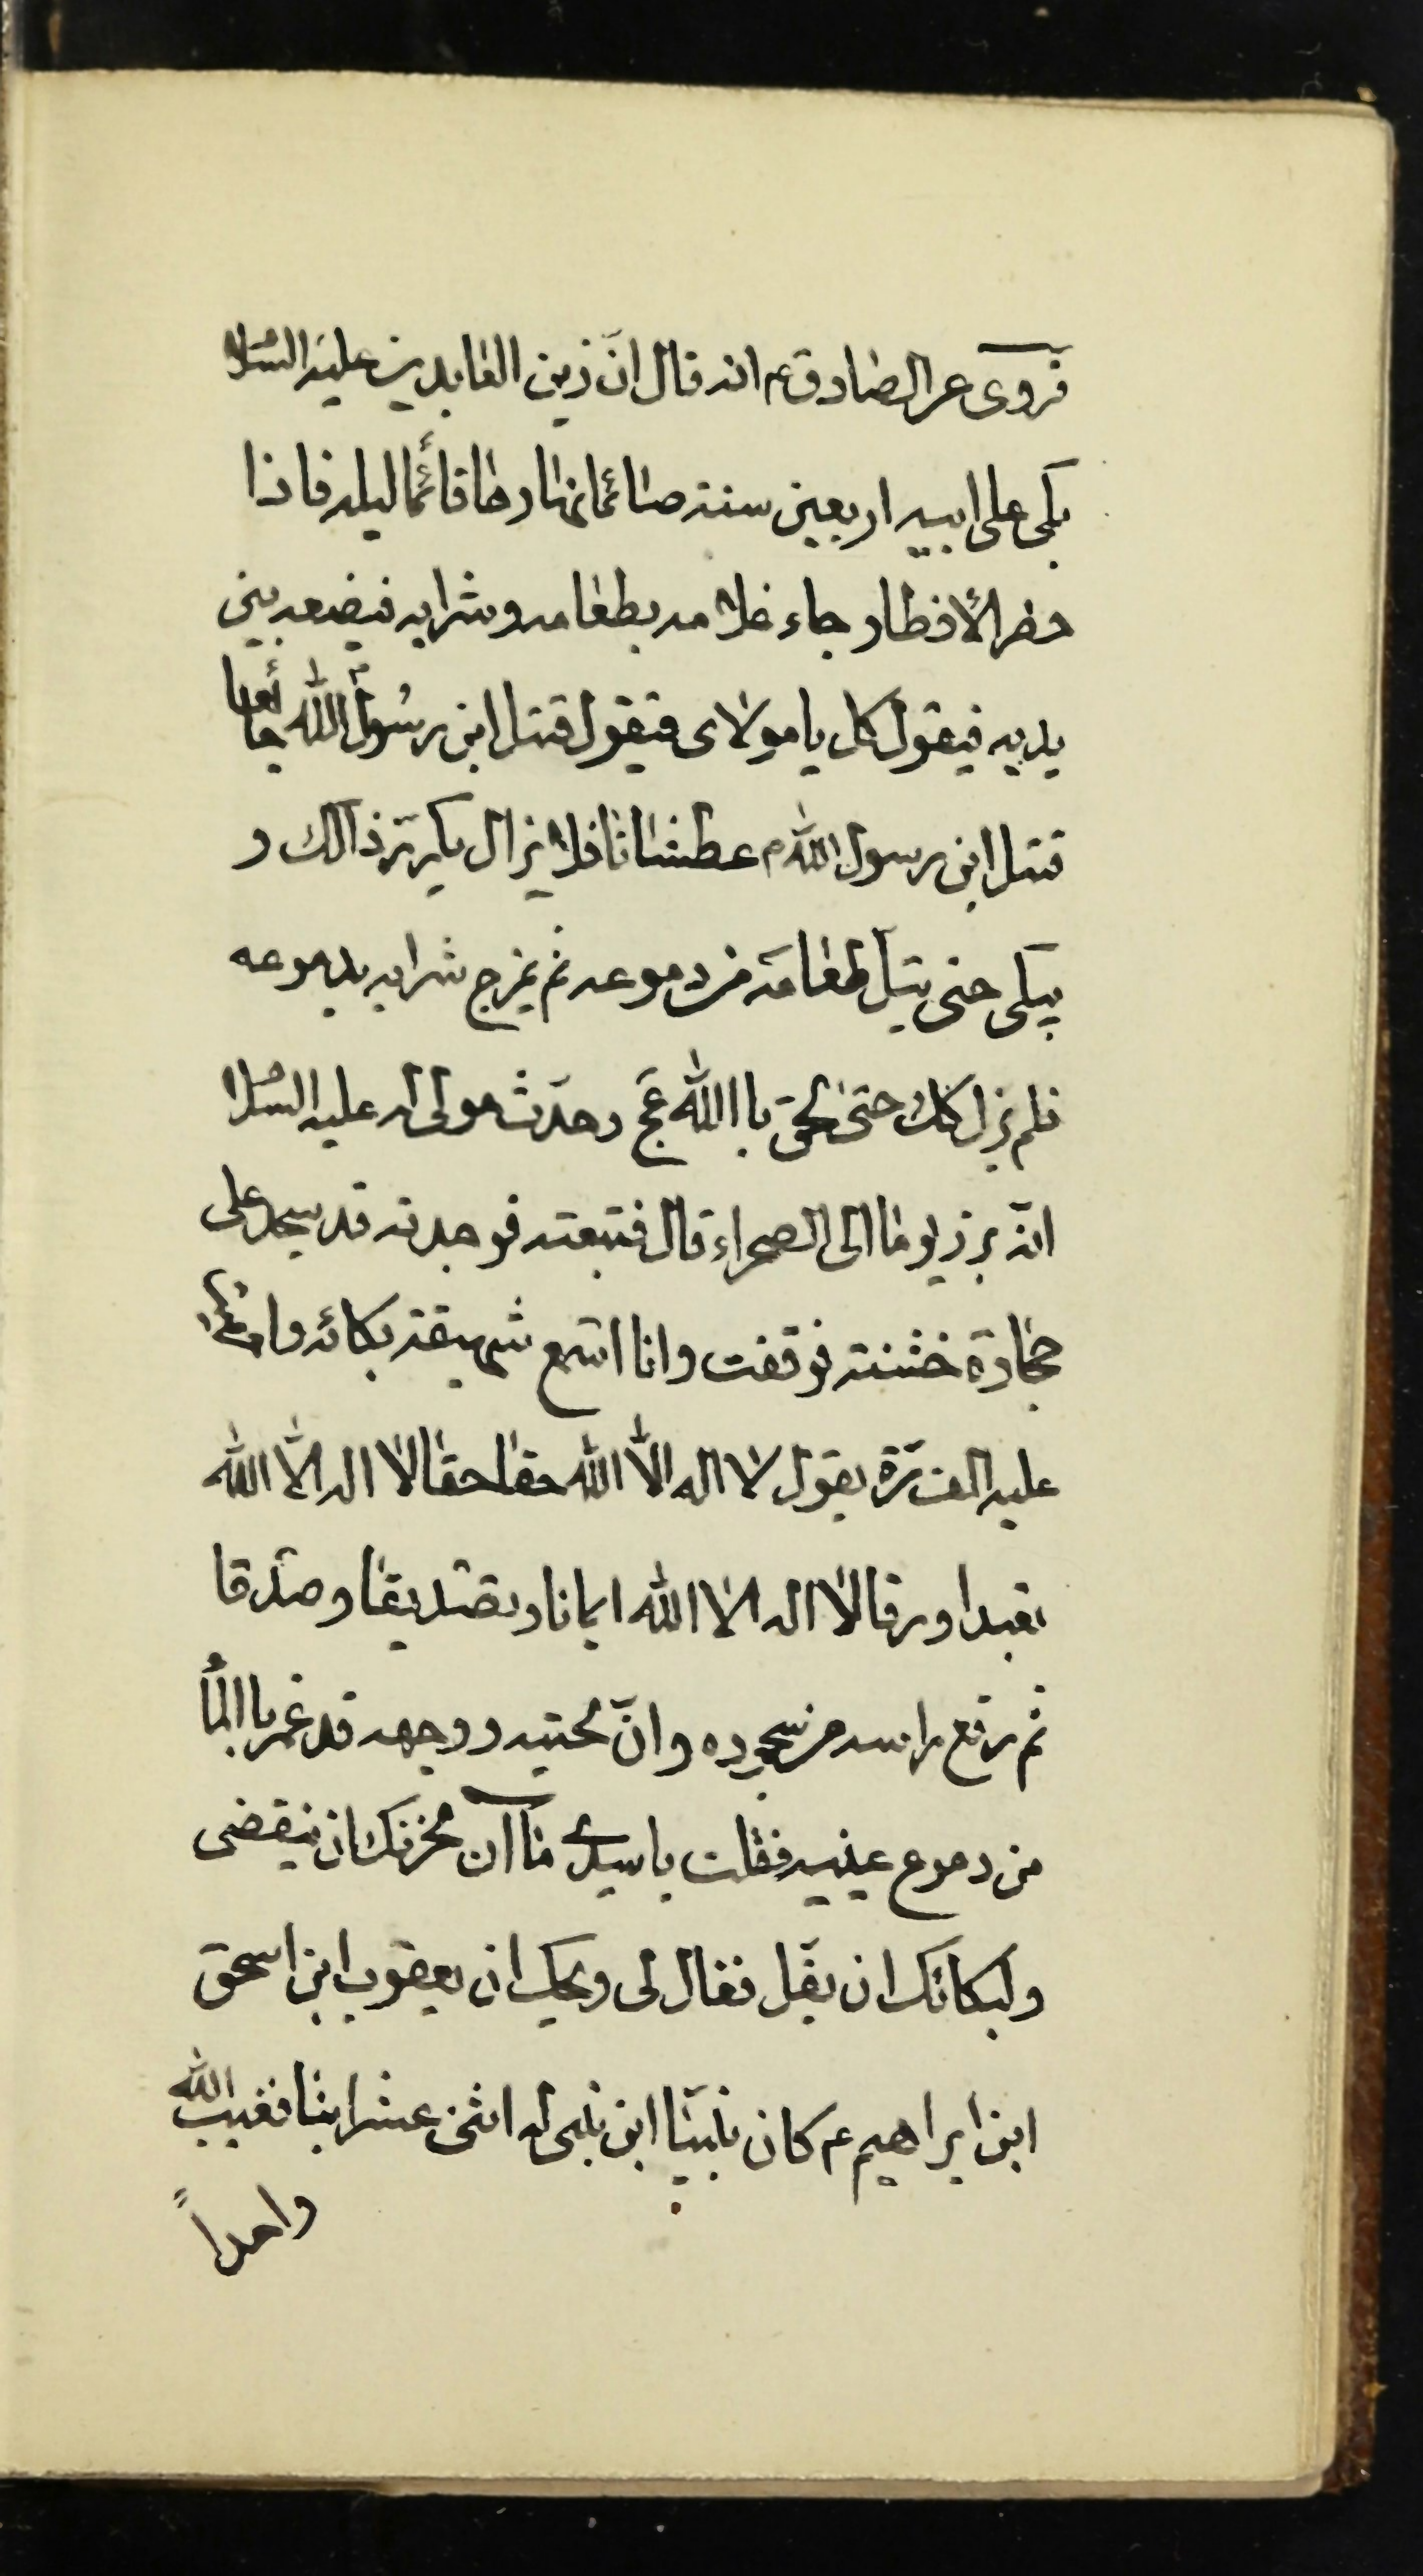 فروى عن الصادق ع انه قال انّ زين العابدين عليه السلا
بكى على ابيه اربعين سنة صائما نهارها قائما ليله فاذا
حضر الأفطار جاء غلامه بطعامه وشرابه فيضعه بين
يديه فيقول كل يا مولاى فيقول قتل ابن رسول الله جائعا
قتل ابن رسول الله ص عطشانا فلا يزال يكرّر ذالك و
يبكى حتى يبلّ طعامه من دموعه ثم يمزج شرابه بدموعه
فلم يزل كك حتى لحق باالله عج وحدّث مولى له عليه السلا
انه برز يوما الى الصحراء قال فتبعته فوجدته قد سجد على
حجارة خشنته فوقفت وانا اسمع شهيقة بكائه و
عليه الف مرّة يقول لا اله الّا الله حقا حقا لا اله الّا الله
تعبدا ورقا لا اله الا الله ايمانا وتصديقا وصدقا
ثم رفع راسه من سجوده وانّ لحيته ووجهه قد غمر باالمأ
من دموع عينيه فقلت يا سيدى ما آن لحزنك ان ينقضى
ولبكائك ان يقلّ فقال لى ويحك ان يعقوب ابن اسحق
ابن ابراهيم ع كان نبيّا ابن نبى له اثنى عشر ابنا فغيب الله
واحداً